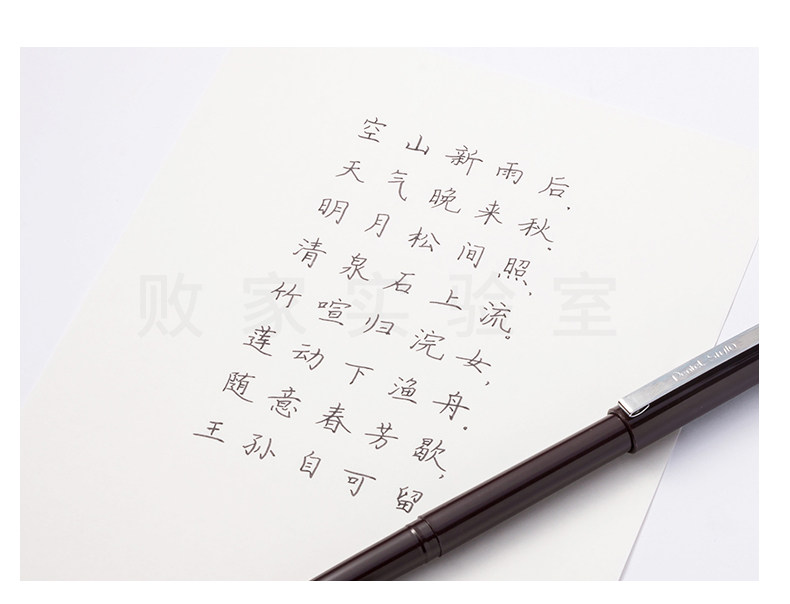 空山新雨后,
天气晚来秋.
明月松间照,
清泉石上流。
竹喧归浣女,
莲动下渔舟.
随意春芳歇,
王孙自可留
败家实验室
Pentel Stylo